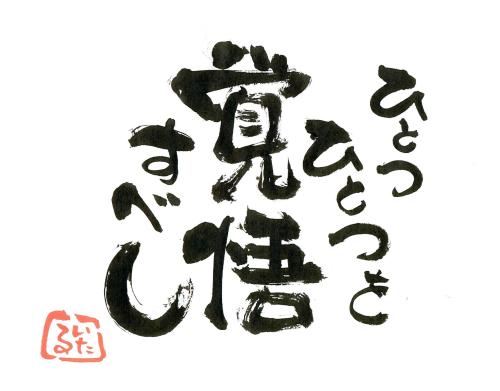 ひとつ
ひとつを
覚悟
すべし
いたる